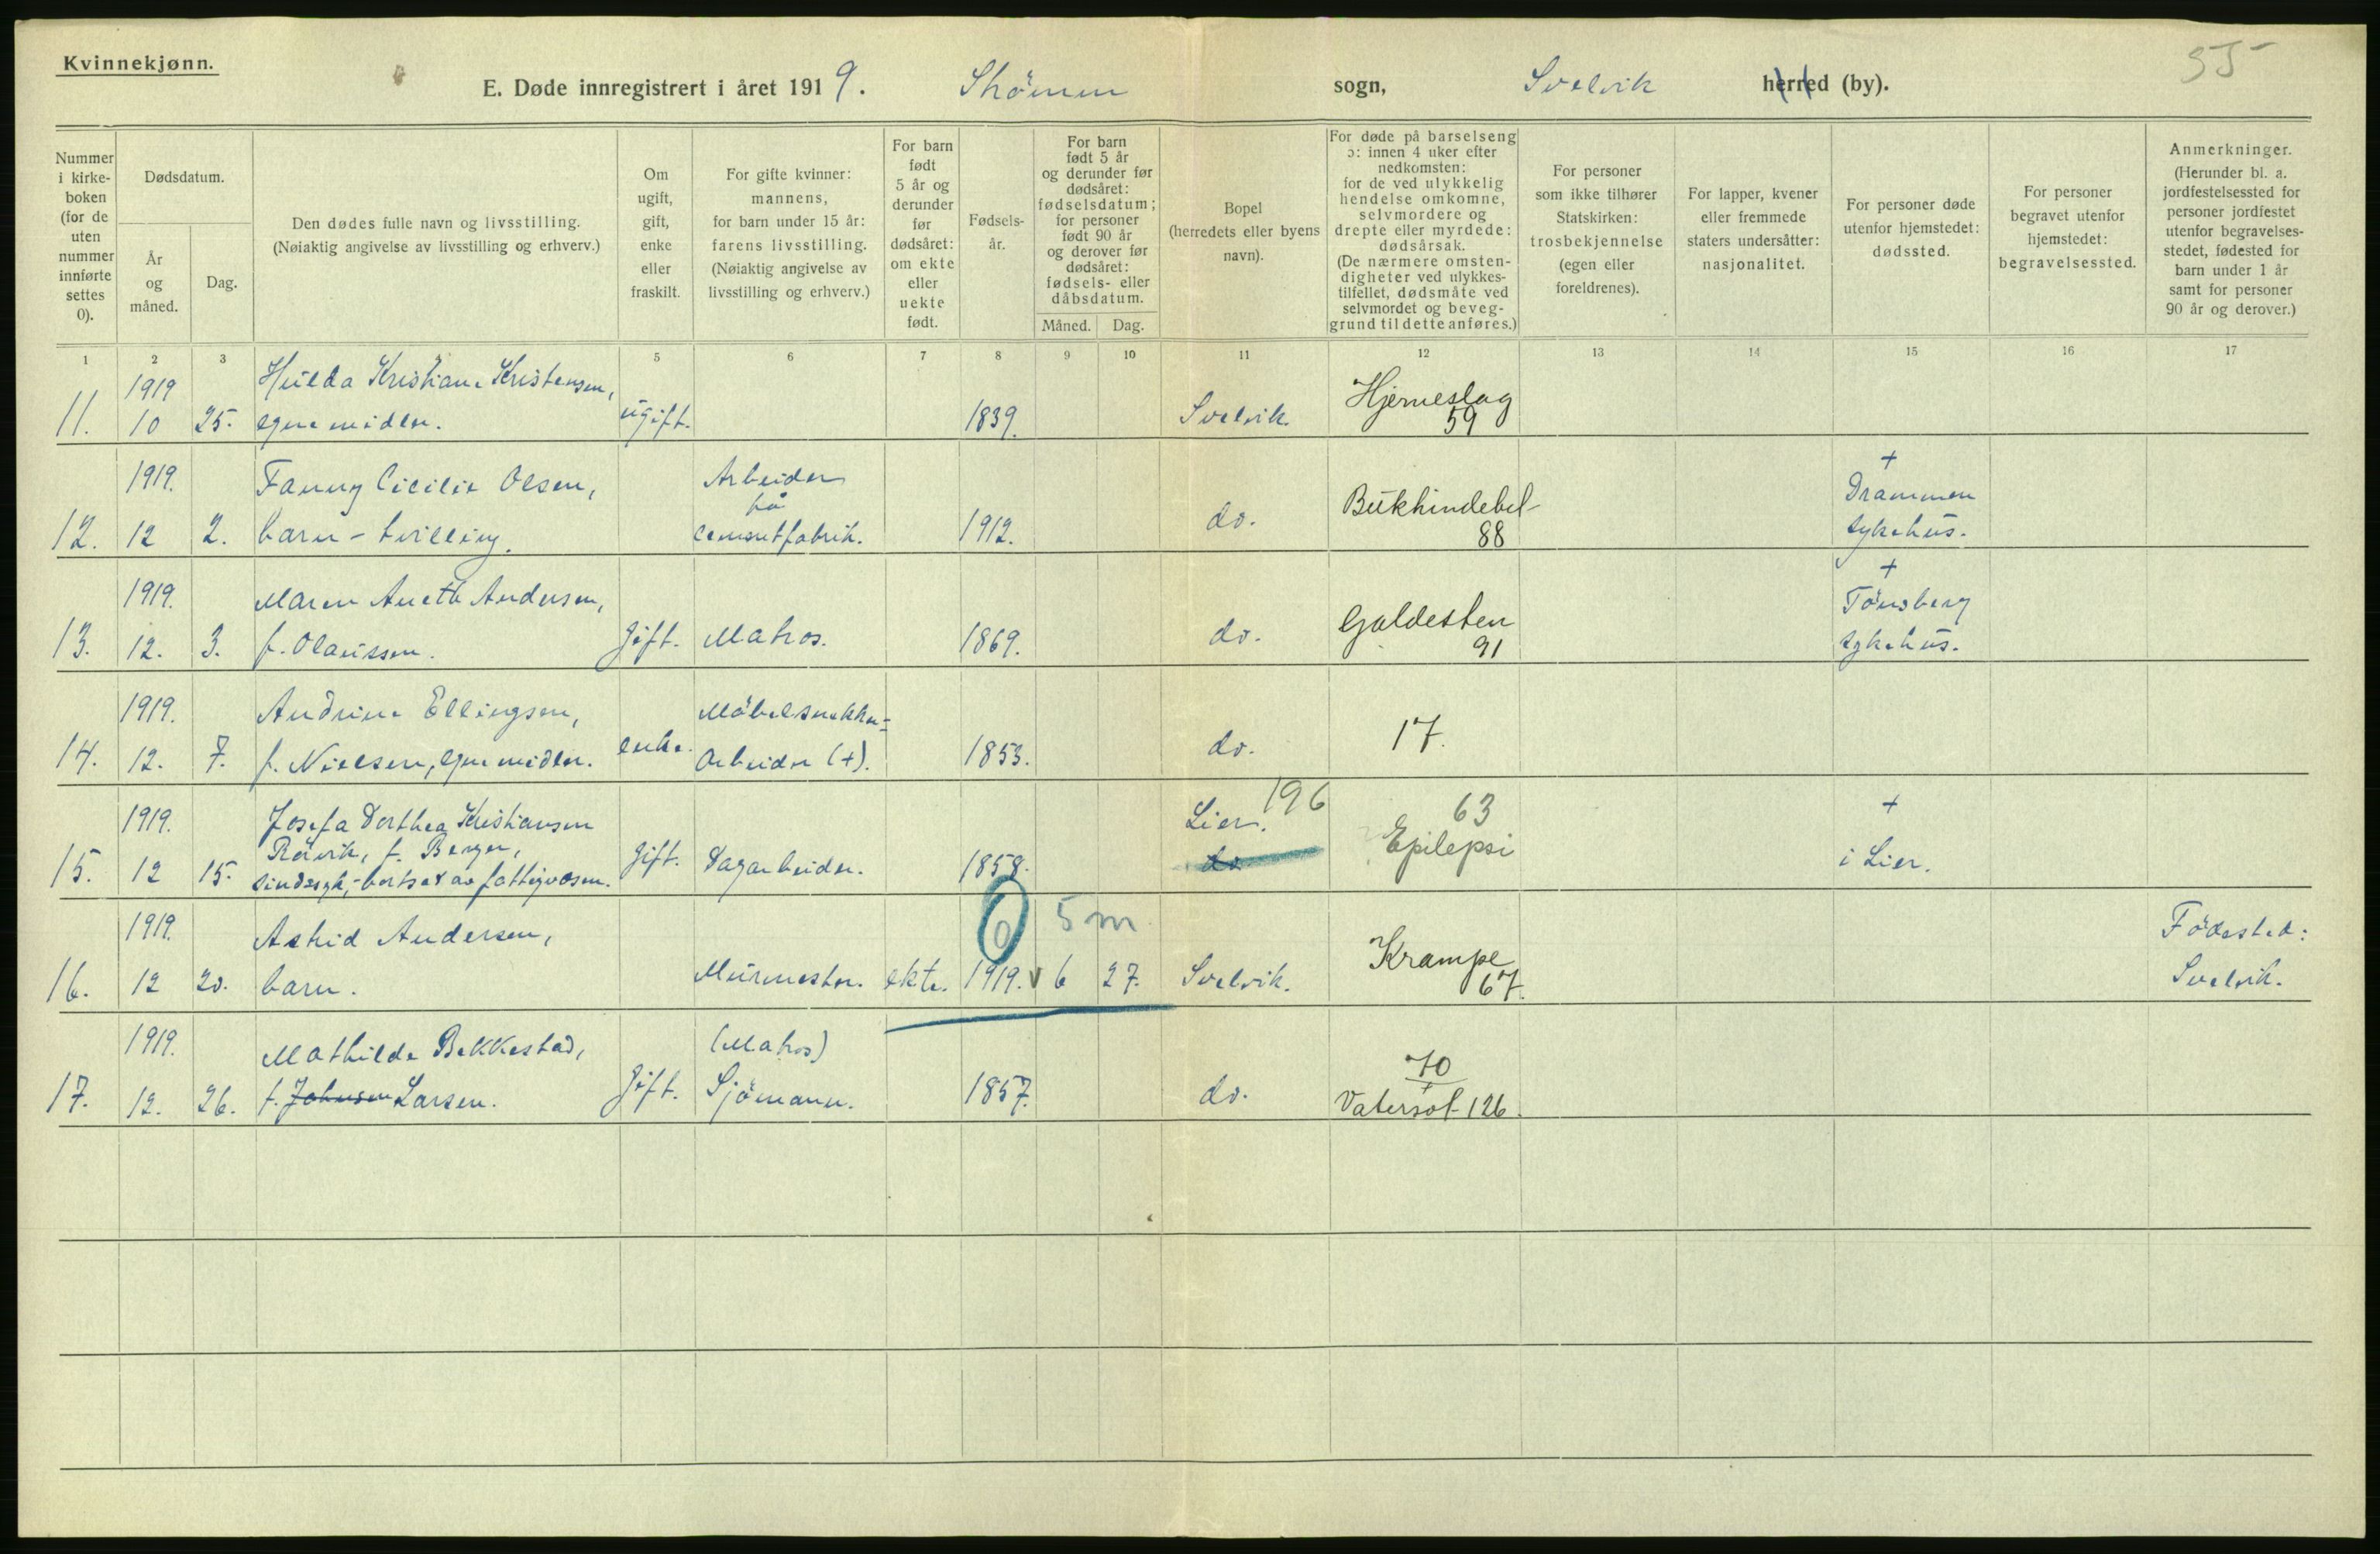 Kvinnekjønn.
55
E. Døde innregistrert i året 1919. Strömm sogn, Svelvik herred (by).
Nummer i kirke- boken (for de uten nummer innførte settes 0).
Dødsdatum.
År og måned.
Dag.
Den dødes fulle navn og livsstilling.
(Nøiaktig angivelse av livsstilling og erhverv.)
Om ugift, gift, enke eller fraskilt.
For gifte kvinner: mannens, for barn under 15 år: farens livsstilling. (Nøiaktig angivelse av livsstilling og erhverv.)
For barn født 5 år og derunder før dødsåret: om ekte eller uekte født.
Fødsels- år.
For barn født 5 år og derunder før dødsåret: fødselsdatum; for personer født 90 år og derover før dødsåret: fødsels- eller dåbsdatum.
Måned. Dag.
Bopel (herredets eller byens navn).
For døde på barselseng ɔ: innen 4 uker efter nedkomsten: for de ved ulykkelig hendelse omkomne, selvmordere og drepte eller myrdede: dødsårsak. (De nærmere omsten- digheter ved ulykkes- tilfellet, dødsmåte ved selvmordet og beveg- grund til dette anføres.)
For personer som ikke tilhører Statskirken: trosbekjennelse (egen eller foreldrenes).
For lapper, kvener eller fremmede staters undersåtter: nasjonalitet.
For personer døde utenfor hjemstedet: dødssted.
For personer begravet utenfor hjemstedet: begravelsessted.
Anmerkninger. (Herunder bl. a. jordfestelsessted for personer jordfestet utenfor begravelses- stedet, fødested for barn under 1 år samt for personer 90 år og derover.)
1 2 3 5 6 7 8 9 10 11 12 13 14 15 16 17
1919 Hulda Kristiane Kristensen, Hjerneslag
11. 10 25. egne midler. ugift. 1839. Svelvik. 59
1919. Fanny Cicilie Olsen, Arbeider på Bukhindebet- + Drammen
12. 12 2. barn - tvilling. cementfabrik. 1912. do. 88 sykehus.
1919. Maren Aneth Andersen, Galdesten + Tönsberg
13. 12. 3. f. Olaussen. gift. Matros. 1869. do. 91 sykehus.
1919. Andrine Ellingsen, Möbelsnekker-
14. 12. 7. f. Nielsen, egne midler. enke. Arbeider (+). 1853. do. 17.
1919. Josefa Dorthea Kristiansen Lier. 196 63 +
Rörvik, f. Berger,
15. 12 15. sindssyk, - bortsat av fattigvæsen. gift. Dagarbeider. 1858. do Epilepsi i Lier.
1919. Astrid Andersen, 0 5 m Krampe Födested:
16. 12 20. barn. Murmester. ekte. 1919. v 6 27. Svelvik. 67. Svelvik.
1919. Mathilde Bekkestad, (Matros) 70
17. 12. 26. f. Johnsen Larsen. gift. Sjömann. 1857. do. Vatersot 126.